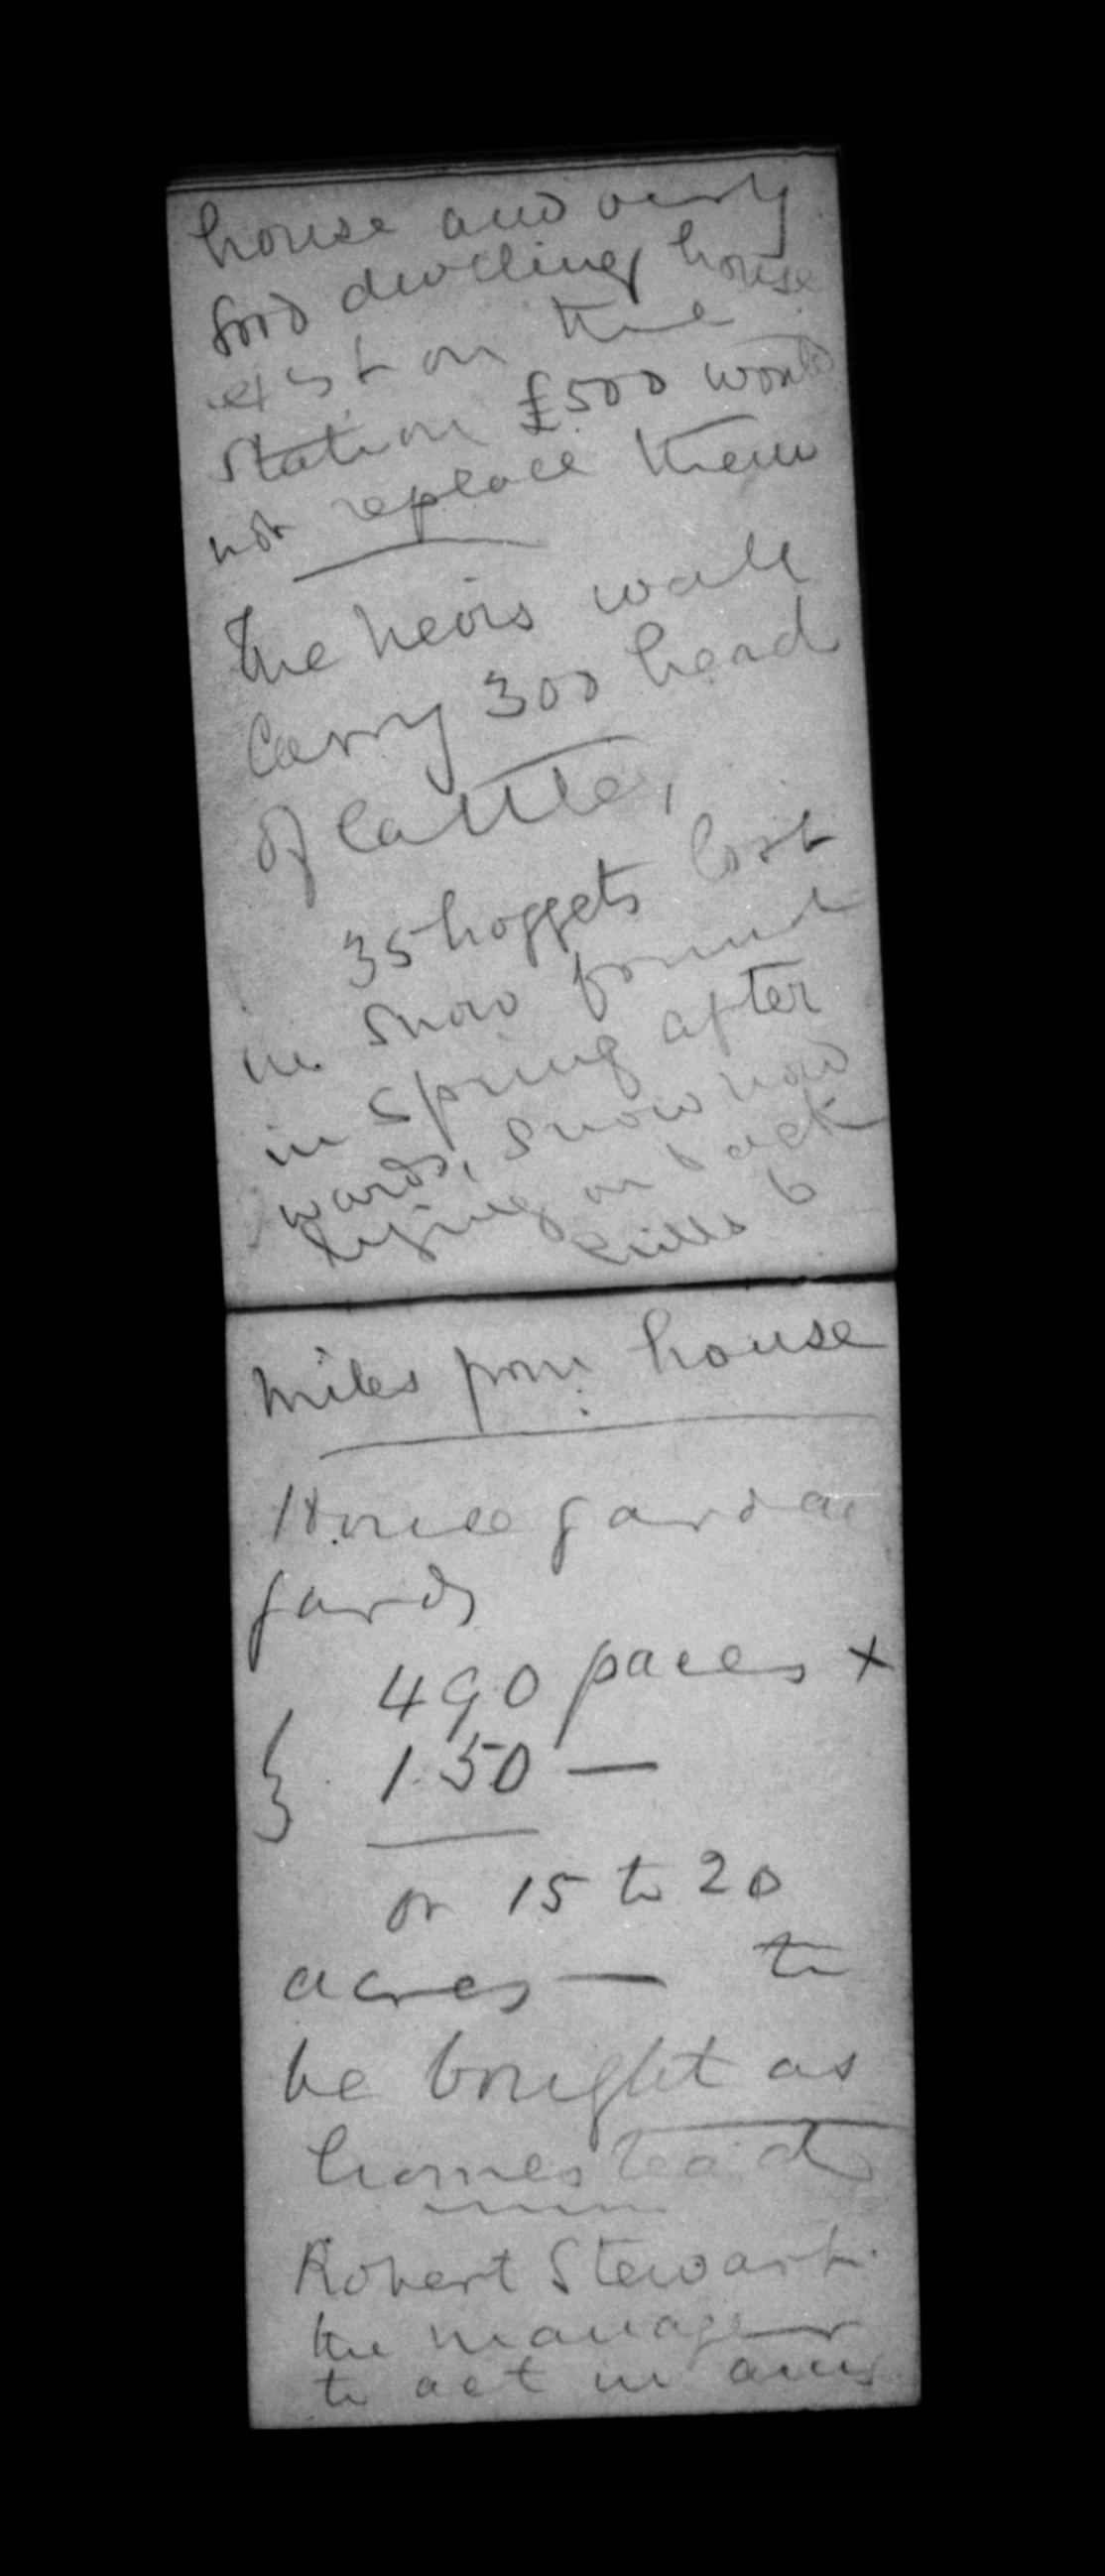 house and very
good dwelling house
exist on the
station £500 would
not replace them
The heirs walk
Carry 300 head
of Cattle,
35 hoggets lost
in snow found
in spring after
wards, snow now
lying on back
hills 6
miles from house
House garden
yards
490 paces x
150 —
or 15 to 20
acres — to
be bought as
homestead
Robert Stewart
the manager
to act in any